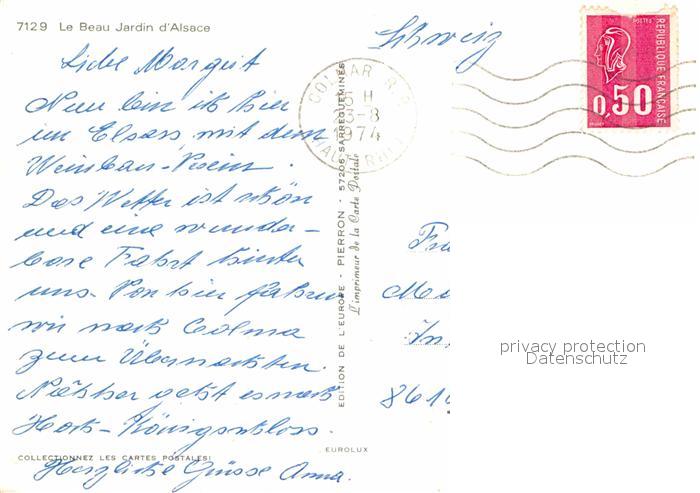 7129 Le Beau Jardin d'Alsace
Schweiz
Liebe Margrit
Nun bin ich hier
im Elsass mit dem
Weinbau-Verein.
Das Wetter ist schön
und eine wunder-
bare Fahrt hinter
uns. Von hier fahren
wir nach Colma
zum Übernachten.
Nachher geht es nach
Hoch-Königschloss.
Herzliche Grüsse Anna.
COLLECTIONNEZ LES CARTES POSTALES!
EDITION DE L'EUROPE - PIERRON - 57206 SARREGUEMINES
L'imprimeur de la Carte Postale
EUROLUX
COLMAR R.P.
15 H
23-8
1974
HAUT-RHIN
POSTES
REPUBLIQUE FRANÇAISE
0,50
Fra
Ma
In
861
privacy protection
Datenschutz